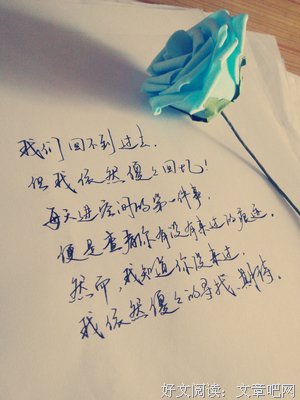 我们回不到过去.
但我依然傻傻回忆!
每天进空间的第一件事.
便是查看你有没有来过的痕迹.
然而,我知道你没来过.
我依然傻傻的寻找、期待.
好文阅读:文章吧网